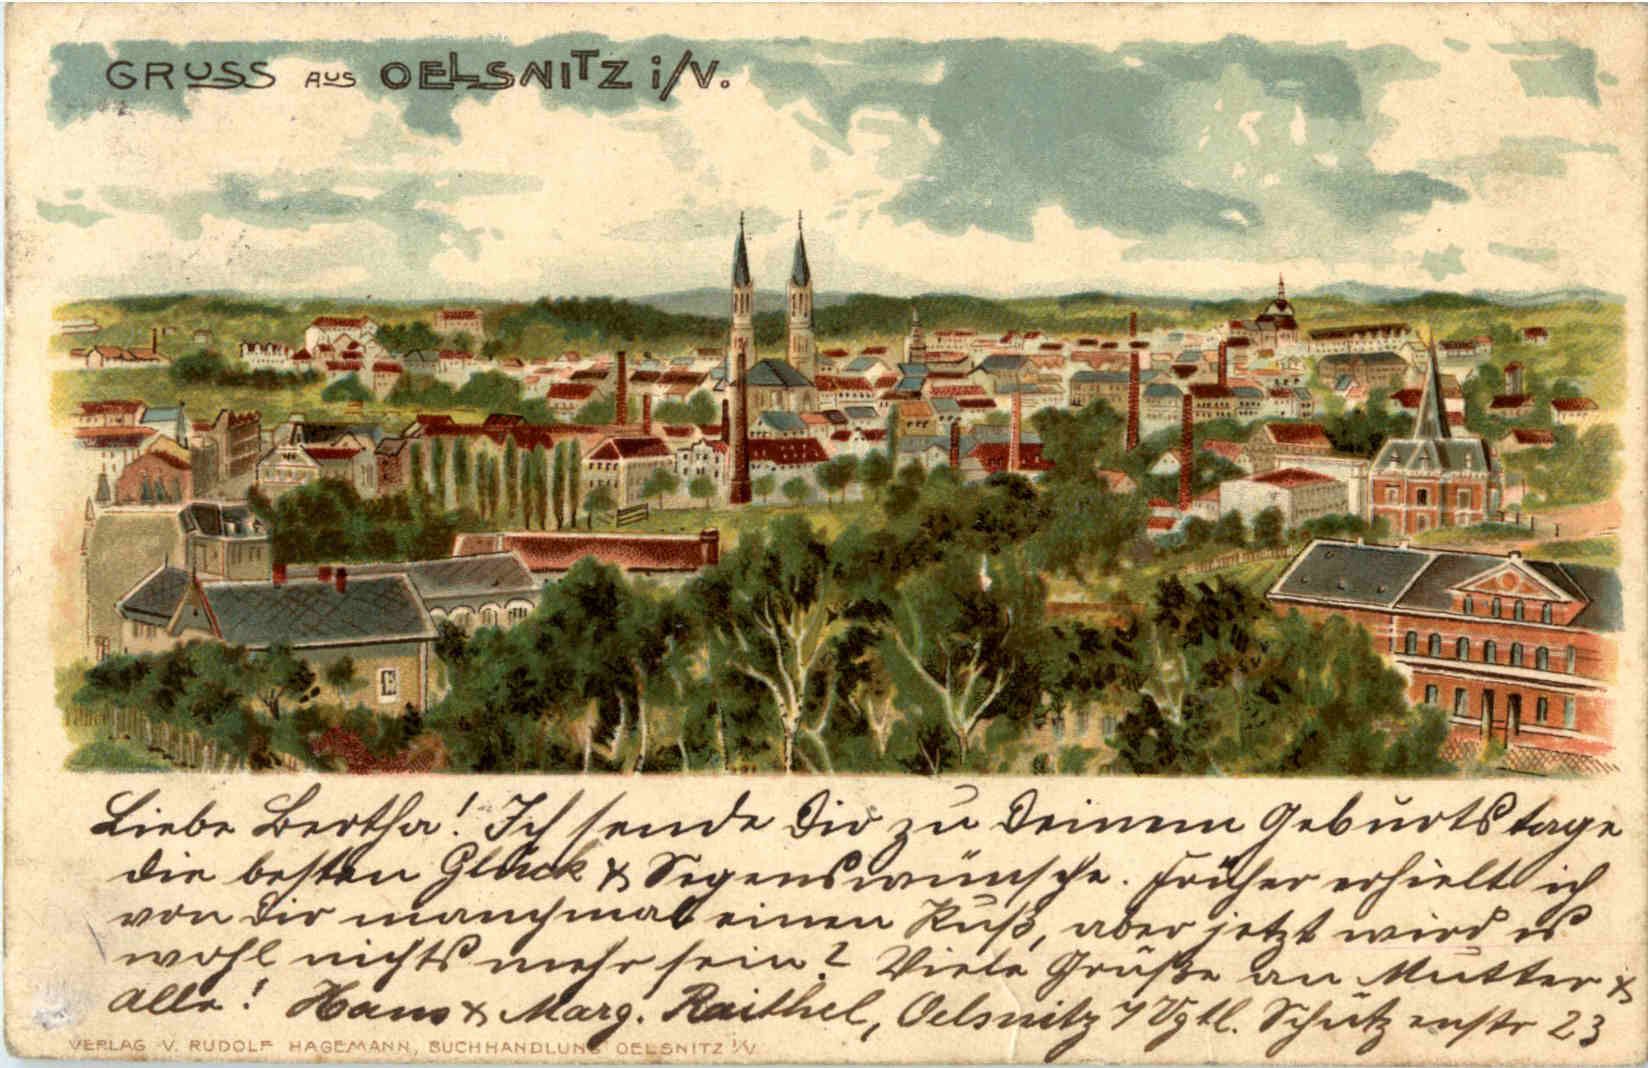 GRUSS AUS OELSNITZ i/V.
Liebe Bertha! Ich sende Dir zu Deinem Geburtstage
die besten Glück & Segenswünsche. Früher erhielt ich
von Dir manchmal einen Kuß, aber jetzt wird es
wohl nichts mehr sein? Viele Grüße an Mutter &
Alle! Hans & Marg. Raithel, Oelsnitz i/Vgtl. Schützenstr 23
VERLAG V. RUDOLF HAGEMANN, BUCHHANDLUNG OELSNITZ i/V.